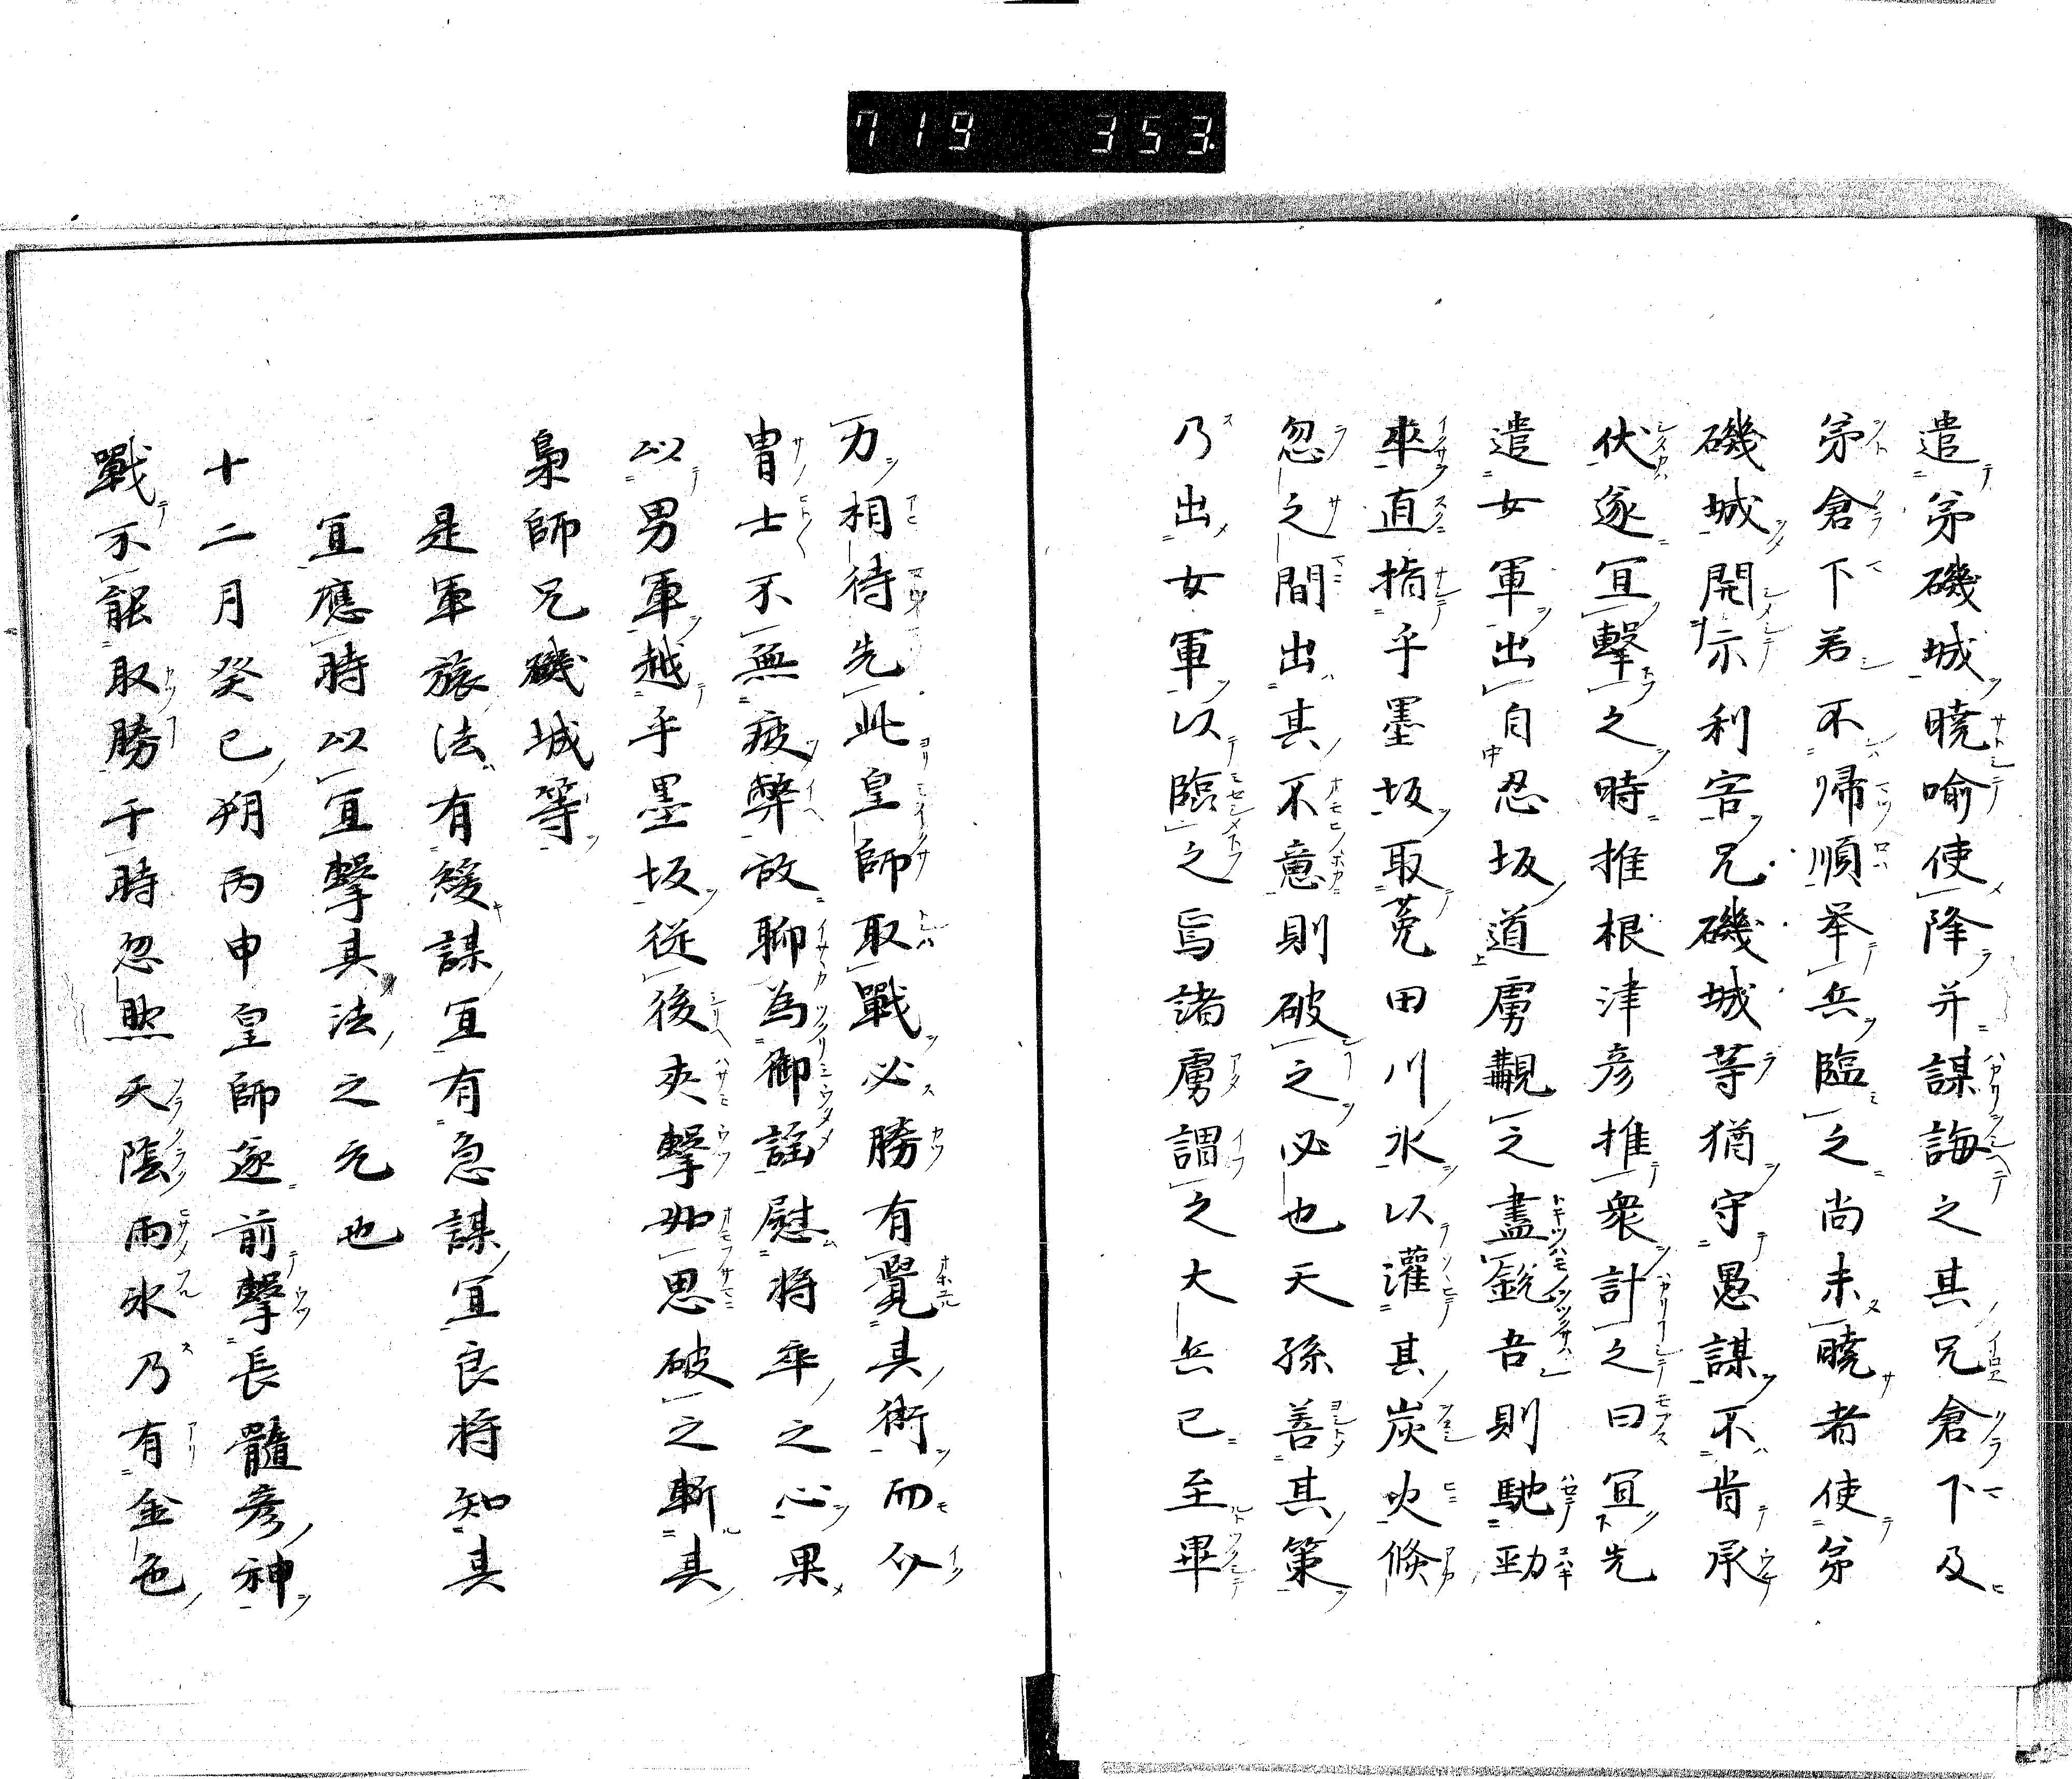 719 353
遣弟磯城暁喩使降并謀誨之其兄倉下及
弟倉下若不帰順挙兵臨之尚未暁者使弟
磯城開示利害兄磯城等猶守愚謀不肯承
伏遂宜撃之時推根津彦推衆計之曰宜先
遣女軍出自忍坂道虜覩之盡鋭吾則馳勁
卒直指乎墨坂取菟田川水以灌其炭火倏
忽之間出其不意則破之必也天孫善其策
乃出女軍以臨之焉諸虜謂之大兵已至畢
力相待先此皇師取戰必勝有覺其術而介
冑士不無疲弊故聊為御謡慰将卒之心果
以男軍越乎墨坂従後夾撃如思破之斬其
梟師兄磯城等
是軍旅法有緩謀宜有急謀宜良将知其
宜應時以宜撃其法之元也
十二月癸巳朔丙申皇師遂前撃長髓彦神
戰不能取勝于時忽然天陰雨氷乃有金色